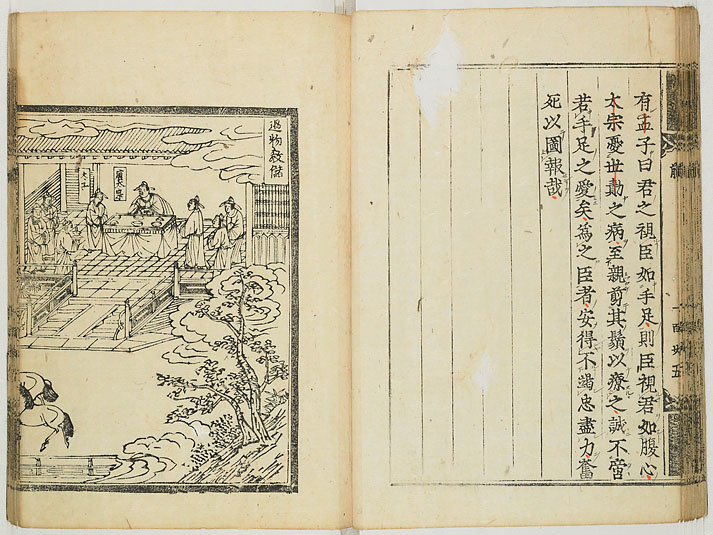 有孟子曰君之視臣如手足則臣視君如腹心
太宗憂世勣之病至親剪其鬚以療之誠不啻
若手足之愛矣為之臣者安得不竭忠盡力奮
死以圖報哉
遇物教儲
唐太宗
太子